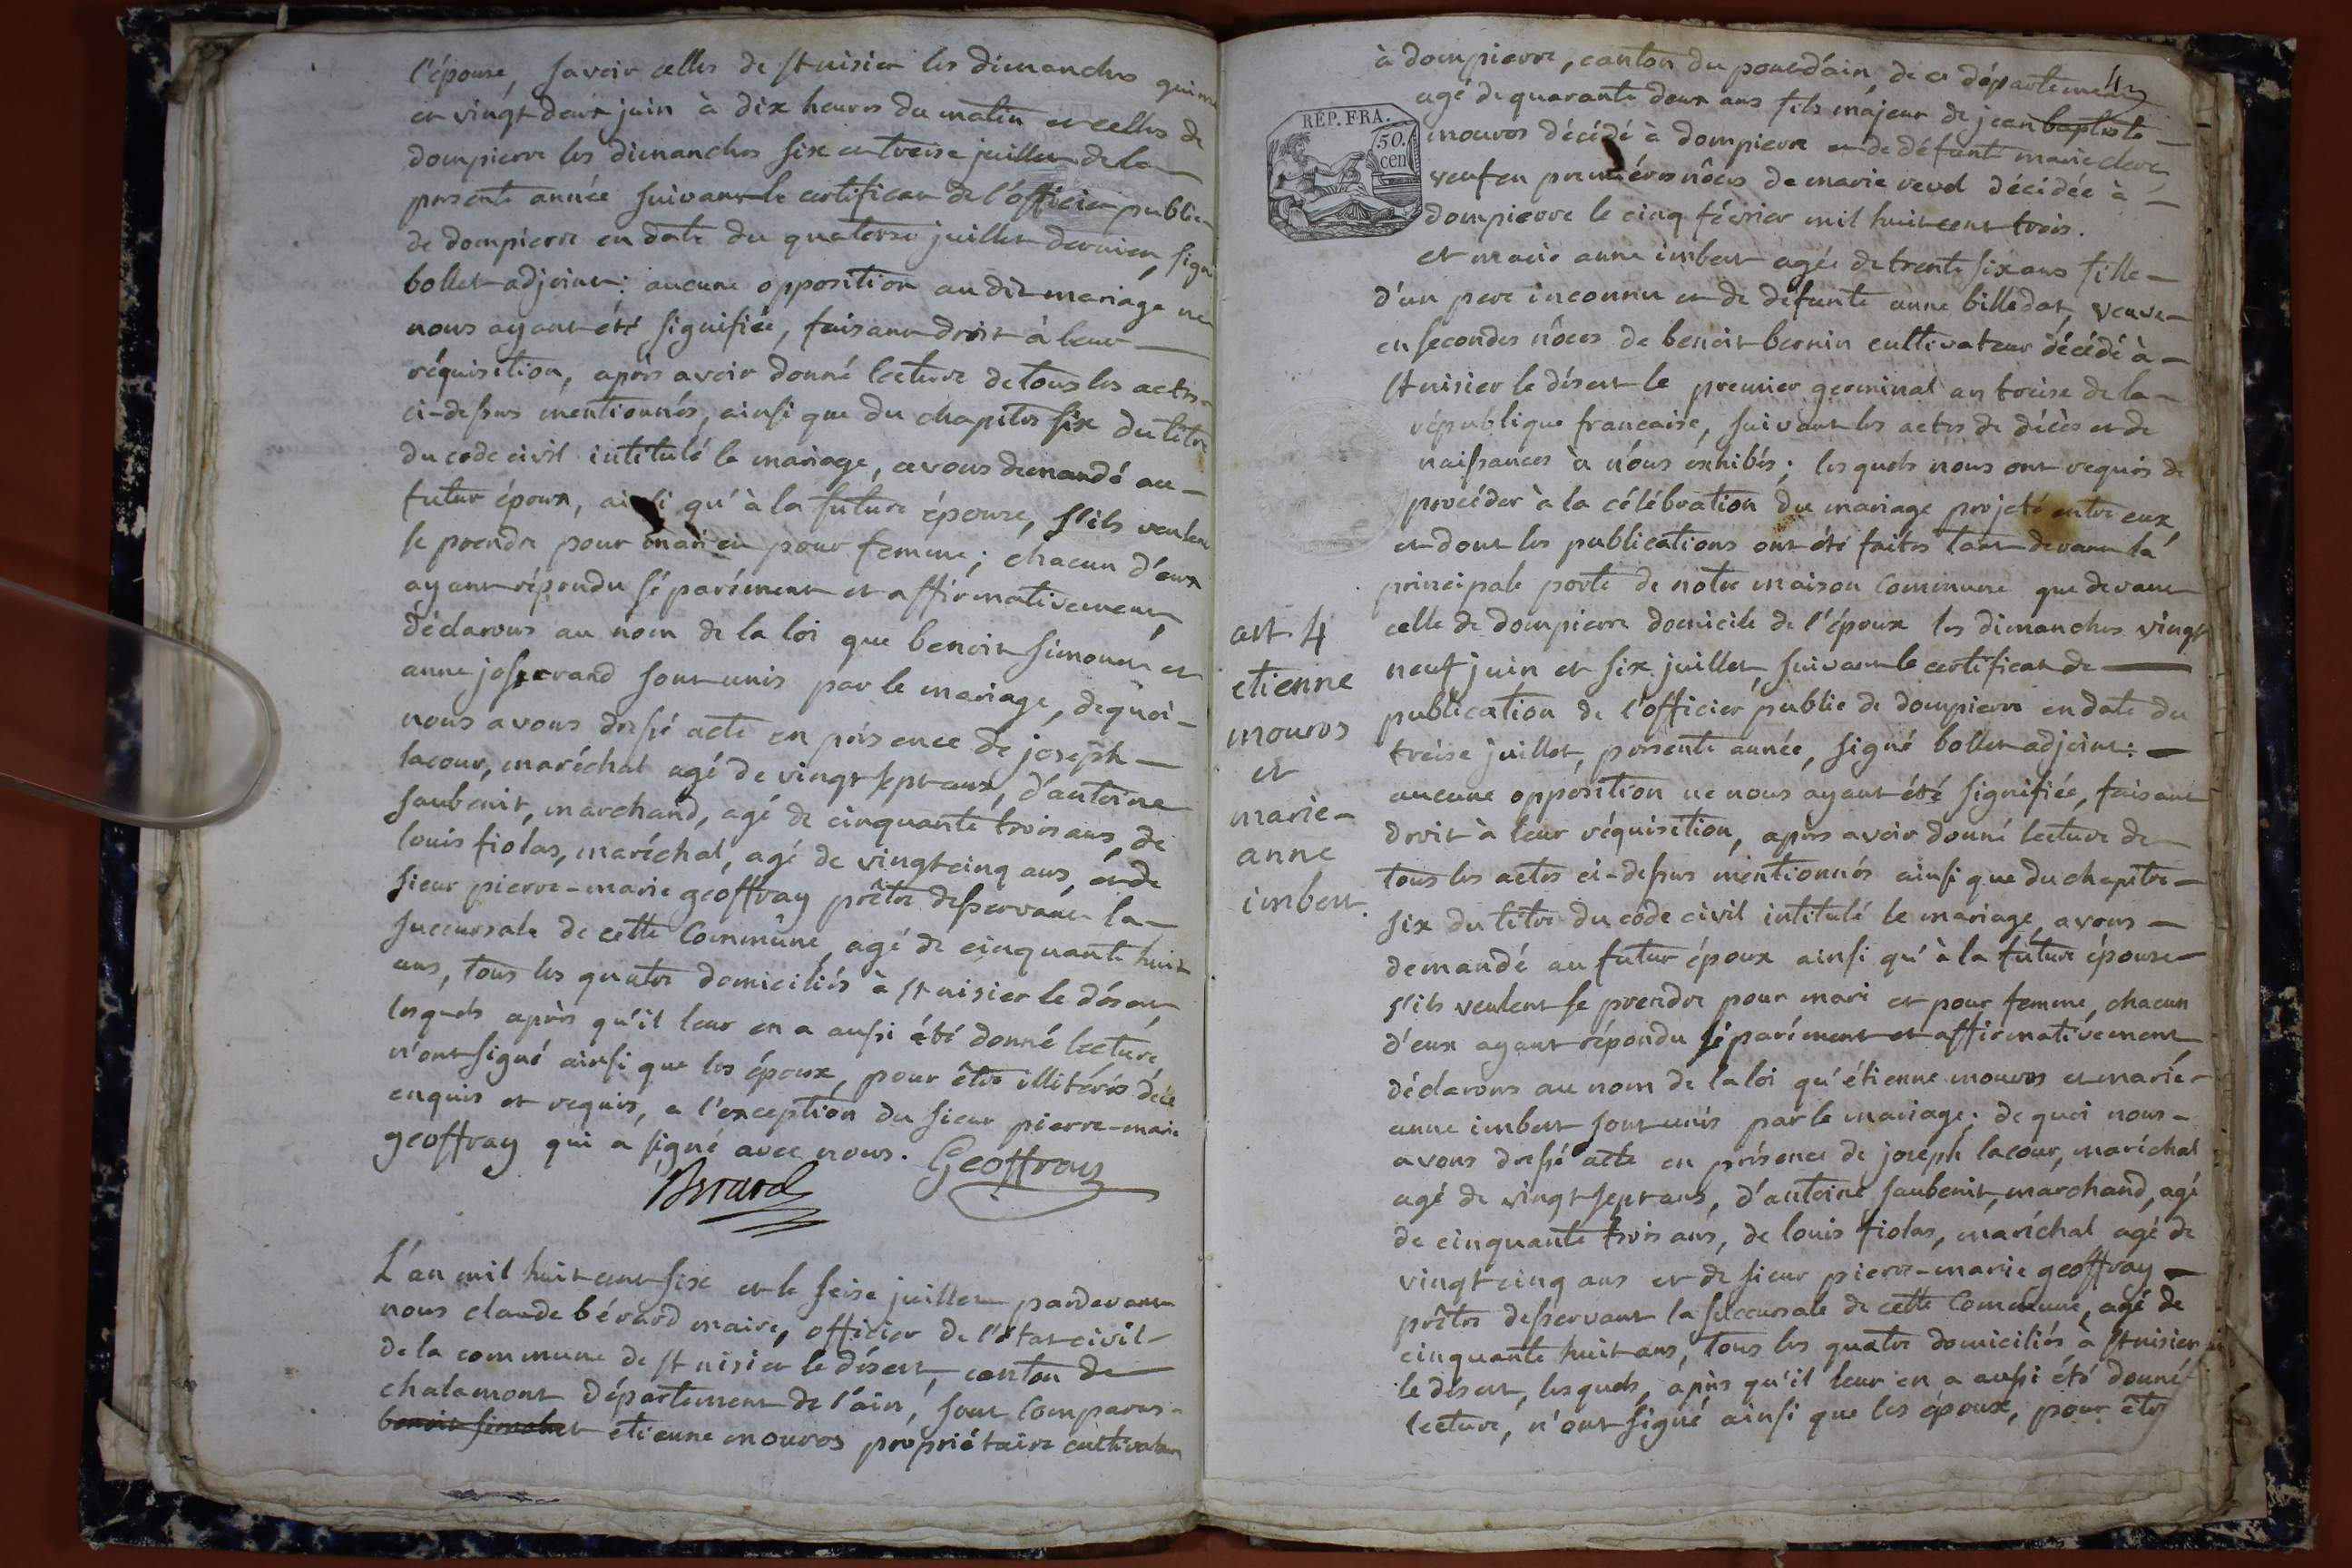 l'épouse, savoir celles de st nisier les dimanches quinze
et vingt deux juin à dix heures du matin et celles de
dompierre les dimanches six et treise juillet de la
presente année suivant le certificat de l'officier public
de dompierre en date du quatorse juillet dernier, signé
bollet adjoint: aucune opposition au dit mariage ne
nous ayant été signifiée, faisant droit à leur
réquisition, après avoir donné lecture de tous les actes
ci-dessus mentionnés, ainsi que du chapitre six du titre
du code civil intitulé le mariage, avons demandé au
futur époux, ainsi qu'à la future épouse, s'ils veulent
se prendre pour mari et pour femme; chacun d'eux
ayant répondu séparément et affirmativement,
déclarons au nom de la loi que benoit simonet et
anne josserand sont unis par le mariage, de quoi
nous avons dressé acte en présence de joseph
lacour, maréchal agé de vingt sept ans, d'antoine
jaubenit, marchand, agé de cinquante trois ans, de
louis fiolas, maréchal, agé de vingt cinq ans, et de
sieur pierre-marie geoffray prêtre desservant la
succursale de cette Commûne, agé de cinquante huit
ans, tous les quatre domiciliés à st nisier le désert,
lesquels après qu'il leur en a aussi été donné lecture,
n'ont signé ainsi que les époux, pour être illitérés de ce
enquis et requis, a l'exception du sieur pierre-marie
geoffray qui a signé avec nous. Geoffray
Bérard
L'an mil huit cent six et le seise juillet pardevant
nous claude bérard maire, officier de l'état civil
de la commune de st nisier le désert, canton de
chalamont département de l'ain, sont comparus
benoit simonet etienne mouros propriétaire cultivateur
à dompierre, canton du pont-d'ain, de ce département
43
agé de quarante deux ans fils majeur de jean baptiste
RÉP. FRA.
50. cen
mouros décédé à dompierre et de défunte marie clere,
veuf en premières nôces de marie revel décédée à
dompierre le cinq février mil huit cent trois.
et marie anne imbert agée de trente six ans fille
d'un pere inconnu et de défunte anne billedot, veuve
en secondes nôces de benoit bernin cultivateur décédé à
st nisier le désert le premier germinal an treise de la
république francaise, suivant les actes de décès et de
naissances à nous exhibés; lesquels nous ont requis de
procéder à la célébration du mariage projeté entre eux,
et dont les publications ont été faites tant devant la
principale porte de notre maison Commune que devant
celle de dompierre domicile de l'époux les dimanches vingt
neuf juin et six juillet, suivant le certificat de
publication de l'officier public de dompierre en date du
treise juillet, presente année, signé bollet adjoint:
aucune opposition ne nous ayant été signifiée, faisant
droit à leur réquisition, après avoir donné lecture de
tous les actes ci-dessus mentionnés ainsi que du chapitre
six du titre du code civil intitulé le mariage, avons
demandé au futur époux ainsi qu'à la future épouse
s'ils veulent se prendre pour mari et pour femme, chacun
d'eux ayant répondu séparément et affirmativement,
déclarons au nom de la loi qu'étienne mouros et marie
anne imbert sont unis par le mariage; de quoi nous
avons dressé acte en présence de joseph lacour, maréchal
agé de vingt sept ans, d'antoine jaubenit, marchand, agé
de cinquante trois ans, de louis fiolas, maréchal agé de
vingt cinq ans et de sieur pierre-marie geoffray
prêtre desservant la succursale de cette Commune, agé de
cinquante huit ans, tous les quatre domiciliés à st nisier
le désert, lesquels, après qu'il leur en a aussi été donné
lecture, n'ont signé ainsi que les époux, pour être
art 4
etienne
mouros
et
marie-
anne
imbert.